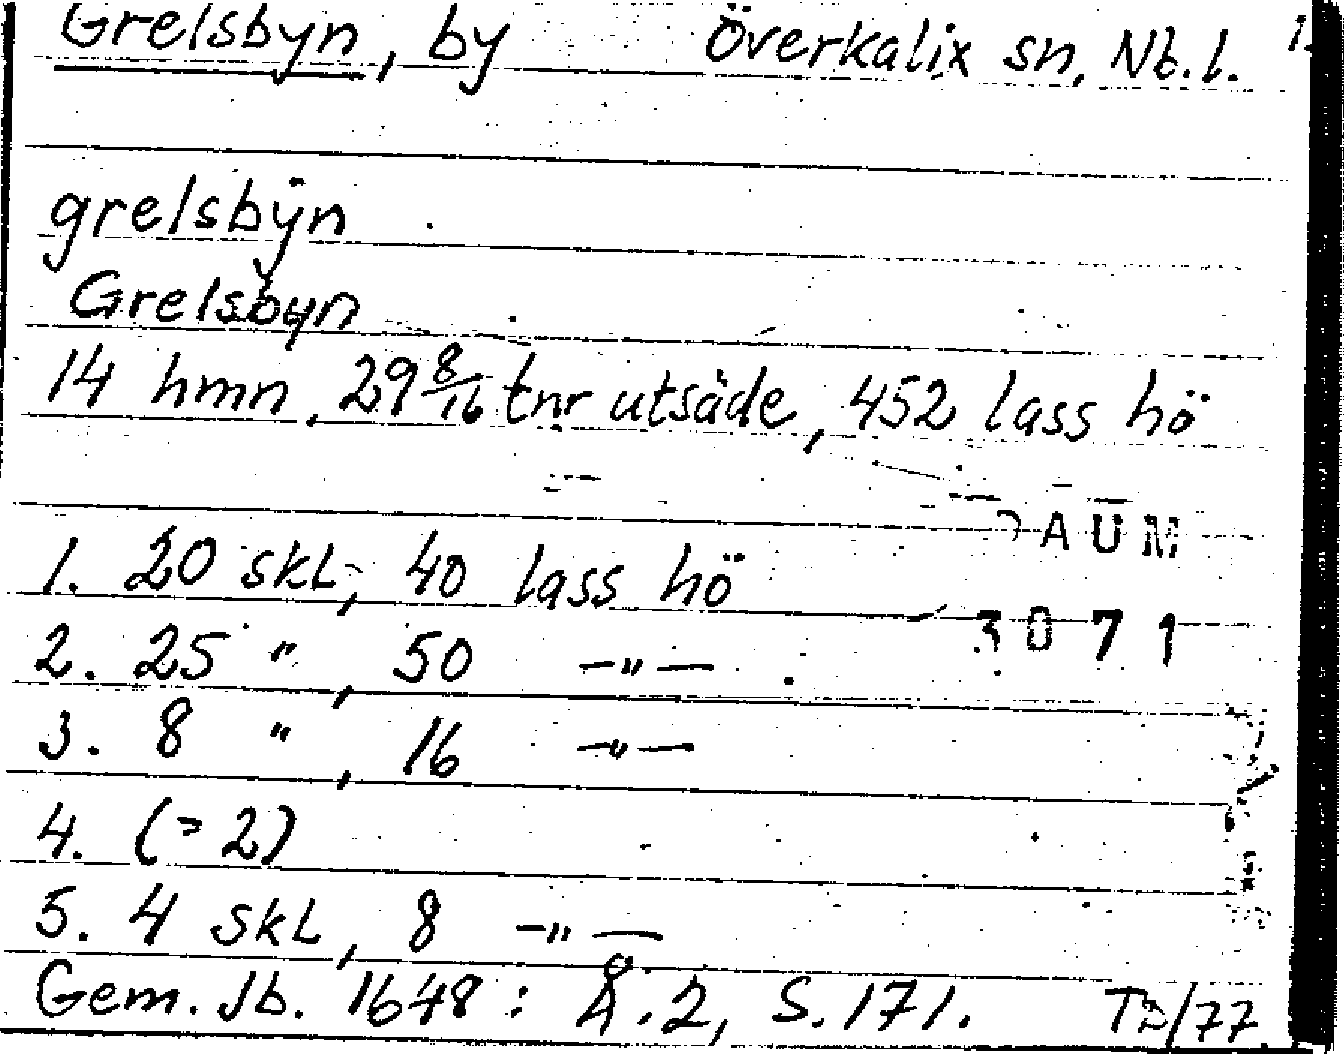 Grelsbyn, by Överkalix sn, Nb.l. 1.
grelsbÿn
Grelsbyn
14 hmn, 29 8/16 tnr utsäde, 452 lass hö
ÄUM
1. 20 skL, 40 lass hö
3071
2. 25 " , 50 —"—
3. 8 " , 16 —"—
4. (=2)
5. 4 skL, 8 —"—
Gem. Jb. 1648 : Å.2, S.171. TB/77.